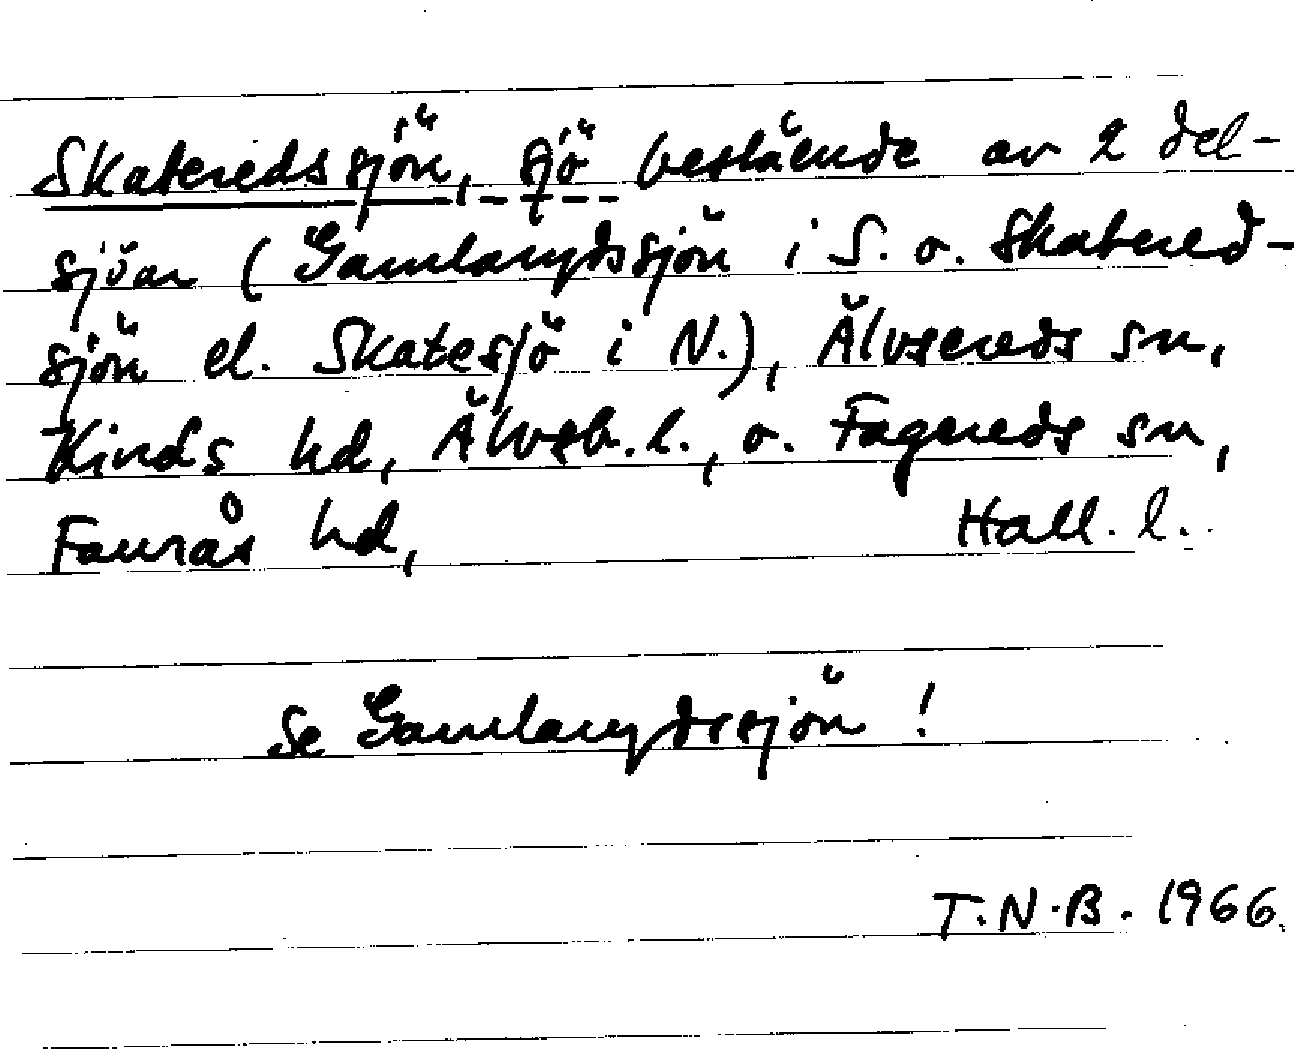 Skateredssjön, sjö bestående av 2 del-
sjöar (Gamlarydssjön i S. o. Skatered-
sjön el. Skatesjö i N.), Älvsereds sn,
Kinds hd, Älvsb. l., o. Fagereds sn,
Faurås hd, Hall. l.
Se Gamlarydssjön !
T.N.B. 1966.